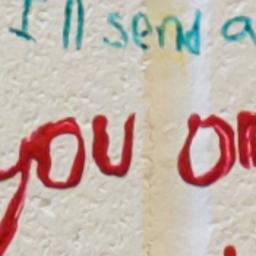 I'll send a
you on